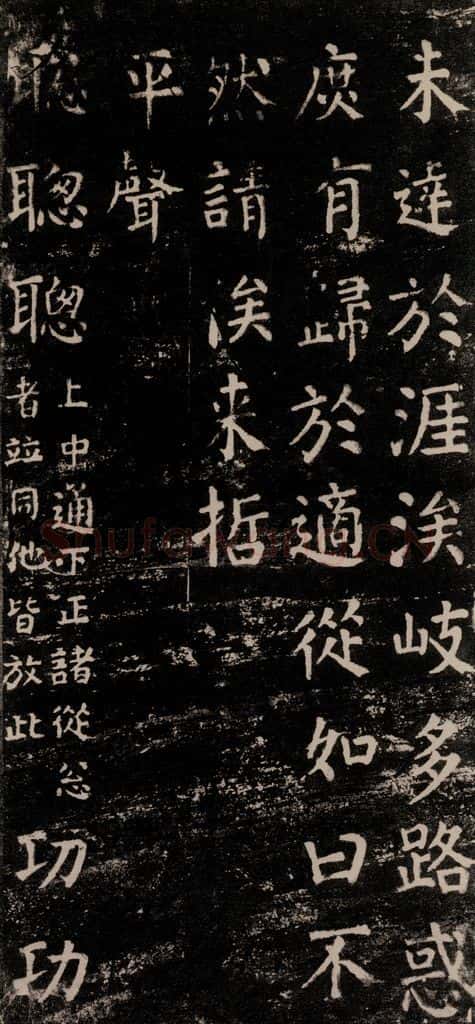 未達於涯涘岐多路惑
庶有歸於適從如曰不
然請俟来哲
平聲
聡聦聰
上中通下正諸從忩
者竝同他皆放此
㓛功
Shufawang.CN